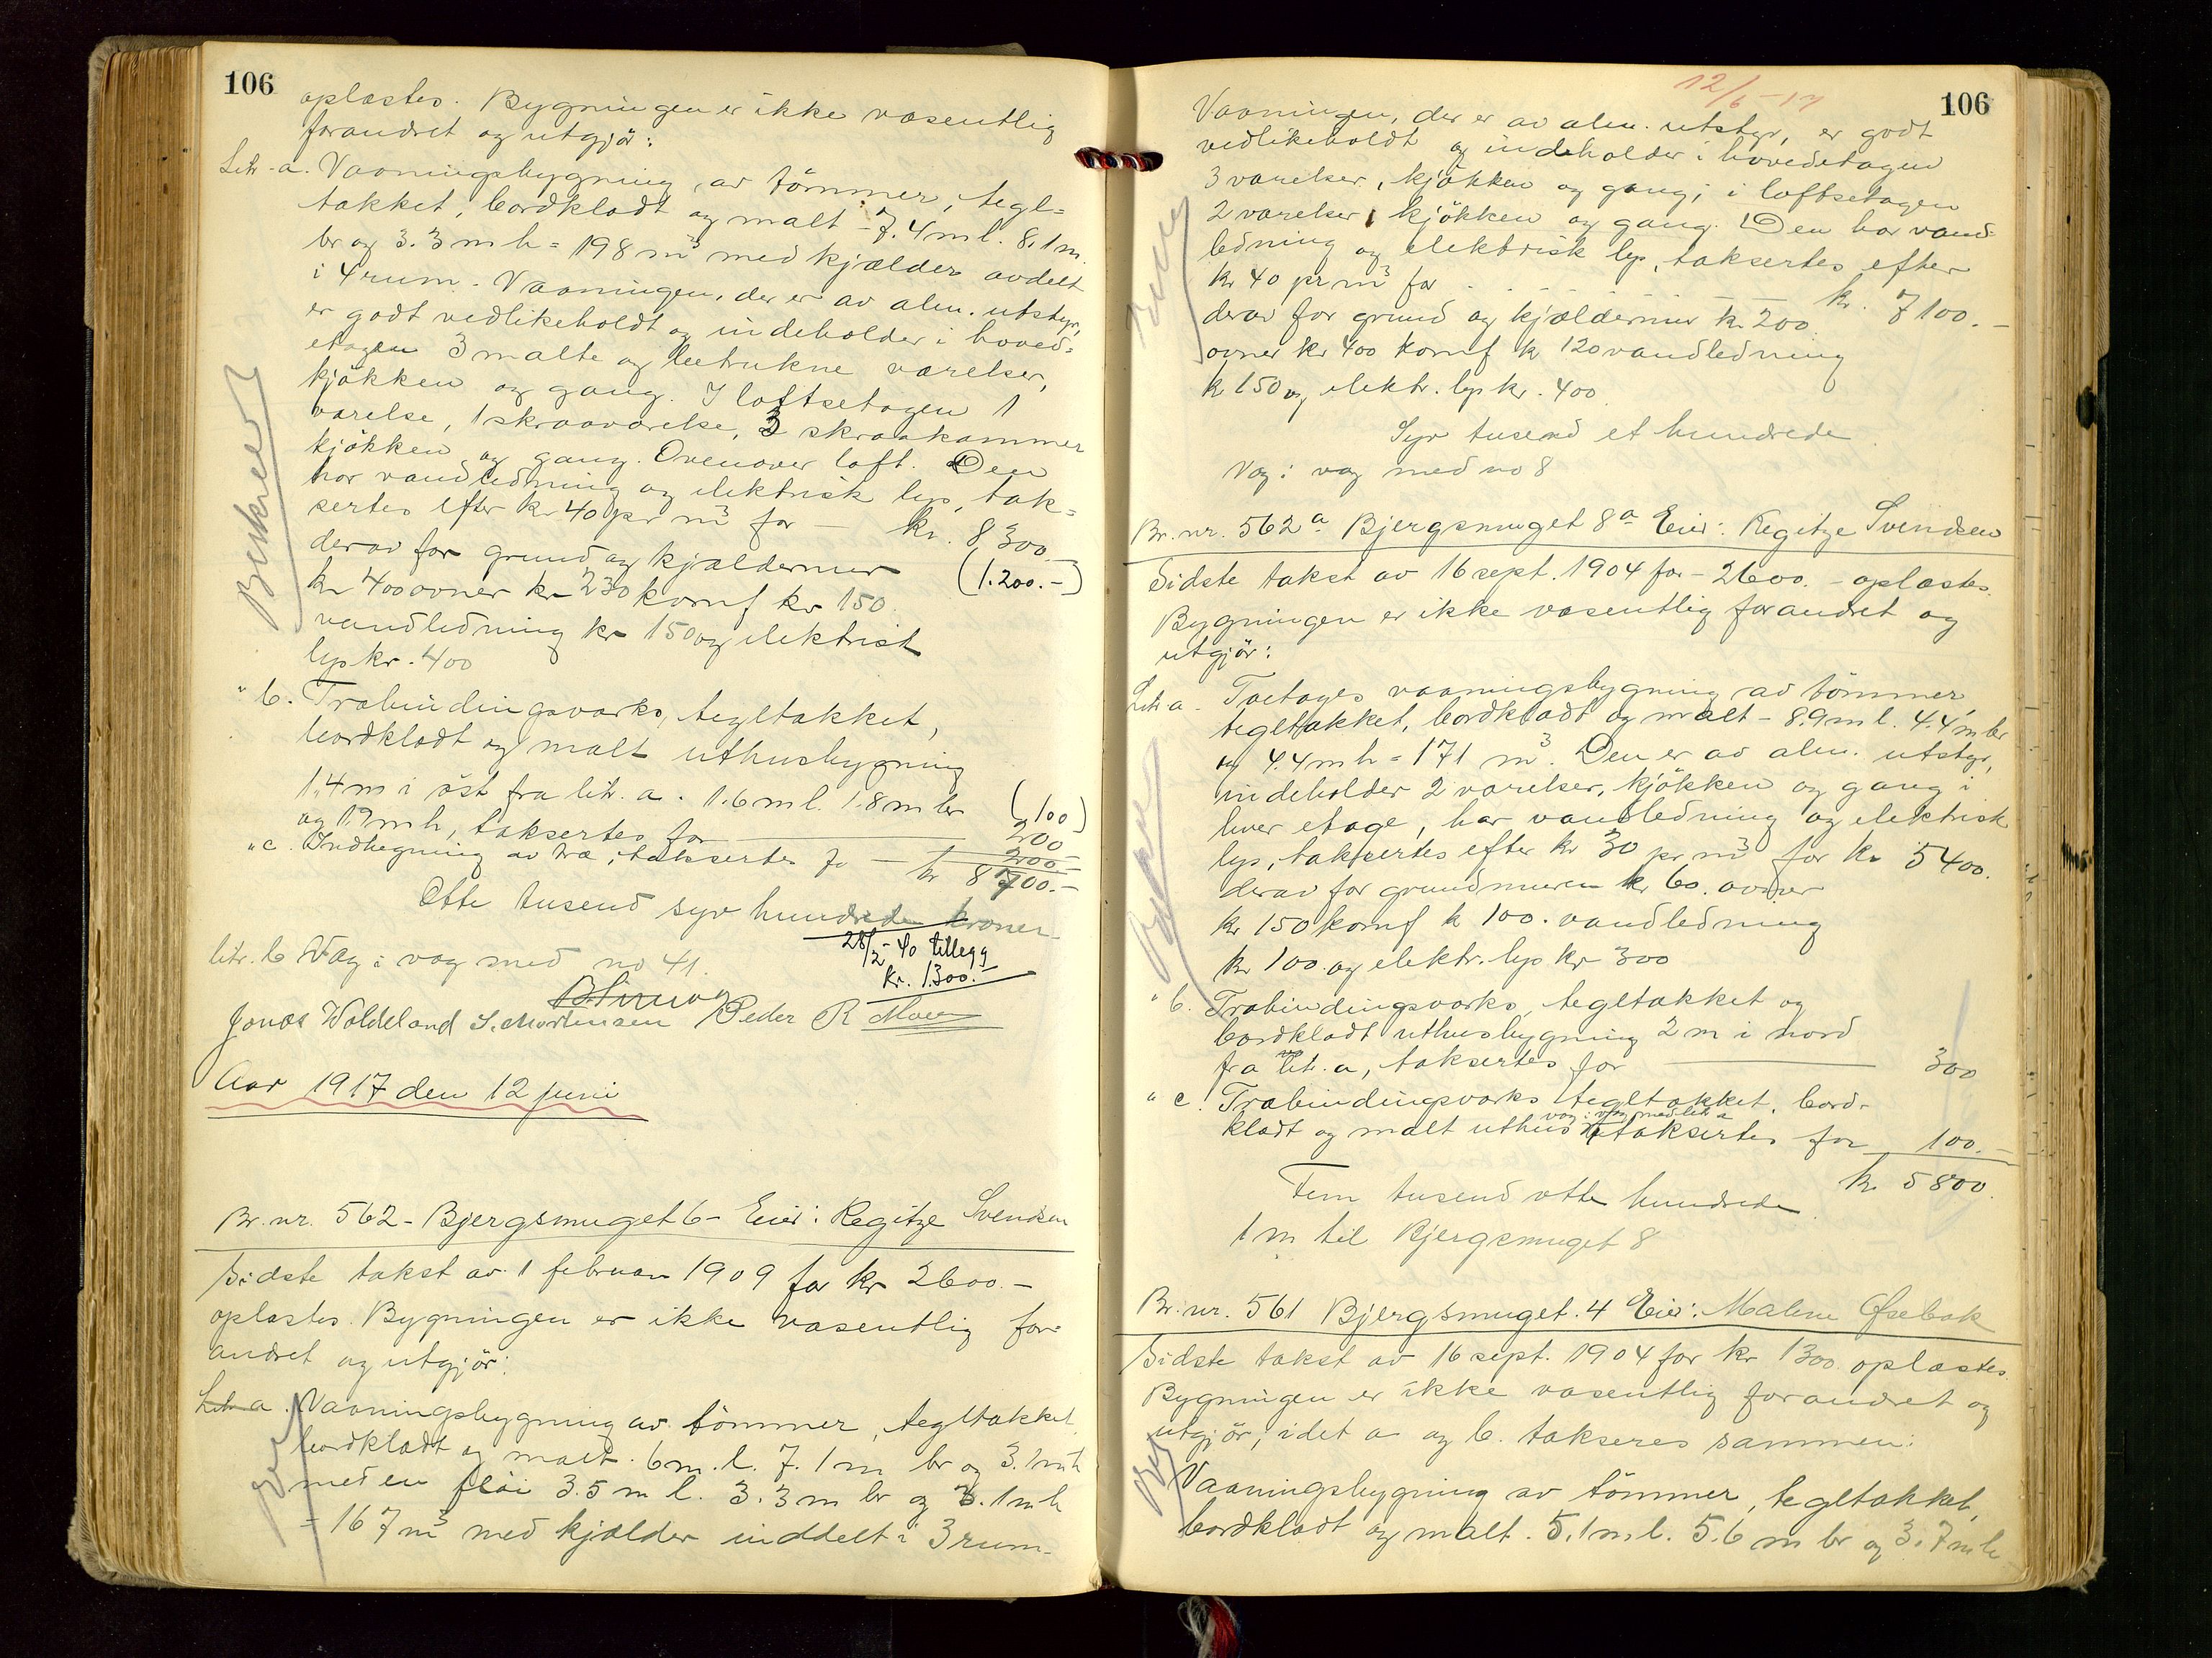 106
oplæstes. Bygningen er ikke væsentlig
forandret og utgjör:
Litr. a. Vaaningsbygning av tömmer, tegl=
takket, bordklædt og malt - 7.4 m l. 8.1 m
br og 3.3 m h = 198 m³ med kjælder avdelt
i 4 rum. Vaaningen, der er av alm. utstyr,
er godt vedlikeholdt og indeholder i hoved=
etagen 3 malte og betrukne værelser,
kjökken og gang. I loftsetagen 1
værelse, 1 skraaværelse, 3 skraakammer
kjökken og gang. Ovenover loft. Den
har vandledning og elektrisk lys, tak=
sertes efter kr 40 pr m³ for — kr. 8300
derav for grund og kjældermur (1.200.-)
kr 400 ovner kr 230 komf kr 150
vandledning kr 150 og elektrisk
lys kr. 400
" b. Træbindingsværks, tegltakket,
bordklædt og malt uthusbygning
1.4 m i öst fra litr. a. 1.6 m l. 1.8 m br (100)
og 1.9 m h, taksertes for 200
" c. Indhegning av træ, taksertes for — 200
kr 8700.-
Otte tusend syv hundrede kroner
28/2-40 tillegg
kr. 1300.-
litr. b Væg i væg med no 41.
Jonas Voldeland S. Mortensen Peder R Moe
Aar 1917 den 12 juni
Br. nr. 562 - Bjergsmuget 6 - Eier: Regitze Svendsen
Sidste takst av 1 februar 1909 for kr 2600.-
oplæstes. Bygningen er ikke væsentlig for=
andret og utgjör:
Litr a. Vaaningsbygning av tömmer, tegltakket
bordklædt og malt. 6 m. l. 7.1 m br og 3.1 m h
med en flöi 3.5 m l. 3.3 m br og 3.1 m h
= 167 m³ med kjælder inddelt i 3 rum.
12/6-17
106
Vaaningen, der er av alm. utstyr, er godt
vedlikeholdt og indeholder i hovedetagen
3 værelser, kjökken og gang; i loftsetagen
2 værelser, kjökken og gang. Den har vand=
ledning og elektrisk lys, taksertes efter
kr 40 pr m³ for kr. 7100.-
derav for grund og kjældermur kr 200
ovner kr 400 komf kr 120 vandledning
kr 150 og elektr. lys kr. 400
Syv tusend et hundrede
Væg i væg med no 8
Br. nr. 562a Bjergsmuget 8a Eier: Regitze Svendsen
Sidste takst av 16 sept. 1904 for - 2600. - oplæstes.
Bygningen er ikke væsentlig forandret og
utgjör:
Litr a. Toetages vaaningsbygning av tömmer,
tegltakket, bordklædt og malt - 8.9 m l. 4.4 m br
og 4.4 m h = 171 m³. Den er av alm. utstyr,
indeholder 2 værelser, kjökken og gang i
hver etage, har vandledning og elektrisk
lys, taksertes efter kr 30 pr m³ for kr 5400.
derav for grundmuren kr 60. ovner
kr 150 komf kr 100. vandledning
kr 100. og elektr. lys kr 300
" b. Træbindingsværks, tegltakket og
bordklædt uthusbygning 2 m i nord
fra litr. a, taksertes for 300
" c. Træbindingsværks tegltakket, bord-
væg i væg med litr a
klædt og malt uthus taksertes for 100.-
kr 5800.
Fem tusend otte hundrede
1 m til Bjergsmuget 8
Br. nr. 561 Bjergsmuget. 4 Eier: Malene Øsebak
Sidste takst av 16 sept. 1904 for kr 1300 oplæstes.
Bygningen er ikke væsentlig forandret og
utgjör, idet a og b. takseres sammen:
Vaaningsbygning av tömmer, tegltakket,
bordklædt og malt. 5.1 m l. 5.6 m br og 3.7 m h